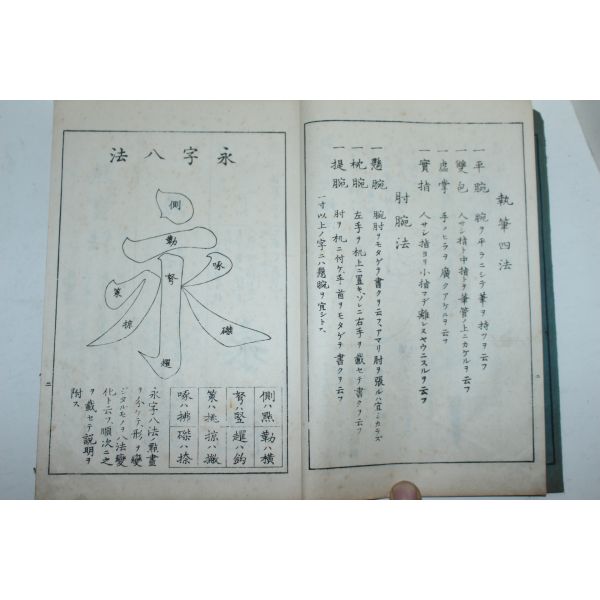 執筆四法
一平腕 腕ヲ平ラニシテ筆ヲ持ツヲ云フ
一雙包 人サシ指ト中指トヲ筆管ノ上ニカケルヲ云フ
一虚掌 手ノヒラヲ廣クアケルヲ云フ
一實指 人サシ指ヨリ小指マデ離レヌヤウニスルヲ云フ
肘腕法
一懸腕 腕肘ヲモタゲヲ書クヲ云フ、アマリ肘ヲ張ルハ宜シカラズ
一枕腕 左手ヲ机上ニ置キ、ソレニ右手ヲ載セテ書クヲ云フ
一提腕 肘ヲ机ニ付ケ、手首ヲモタゲヲ書クヲ云フ
一寸以上ノ字ニハ懸腕ヲ宜シトス
永字八法
側
勒
努
趯
策
掠
啄
磔
側ハ點 勒ハ横
努ハ竪 趯ハ鈎
策ハ挑 掠ハ撇
啄ハ拂 磔ハ捺
永字八法ハ點畫
ヲ分ケテ形ヲ變
ジタルモノヲ八法變
化ト云フ順次ニ之
ヲ載セテ説明ヲ
附ス
二